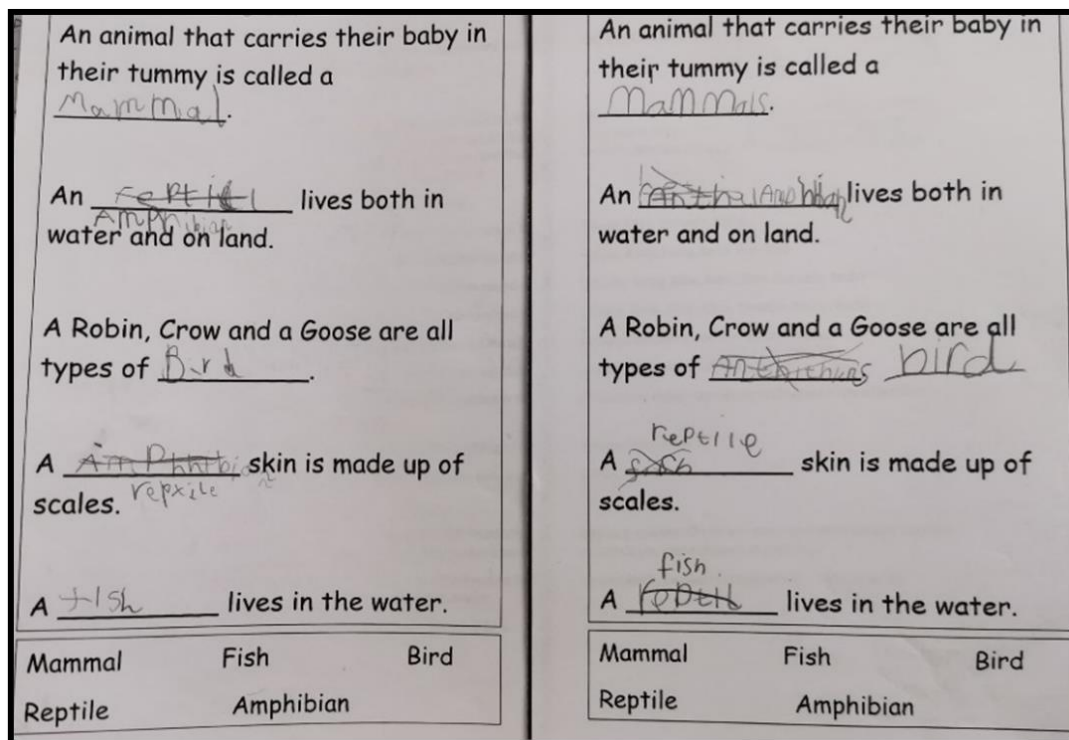 An animal that carries their baby in
their tummy is called a
Mammal.
An reptil lives both in
Amphibian
water and on land.
A Robin, Crow and a Goose are all
types of Bird.
A Amphhibian skin is made up of
reptile
scales.
A fish lives in the water.
Mammal Fish Bird
Reptile Amphibian
An animal that carries their baby in
their tummy is called a
Mammals.
An Amphibian lives both in
water and on land.
A Robin, Crow and a Goose are all
types of bird
reptile
A fish skin is made up of
scales.
fish
A reptil lives in the water.
Mammal Fish Bird
Reptile Amphibian